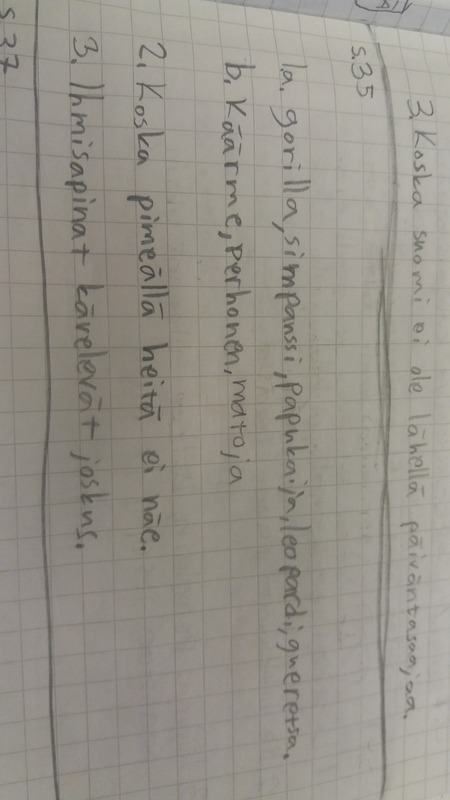 3. Koska suomi ei ole lähellä päiväntasaajaa.
s.35
1a. gorilla, simpanssi, papukaija, leopardi, queretsa.
b. Käärme, perhonen, matoja
2. Koska pimeällä heitä ei näe.
3. Ihmisapinat kävelevät joskus.
s.37